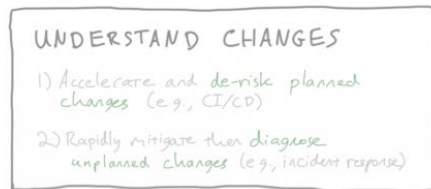 UNDERSTAND CHANGES
1) Accelerate and de-risk planned
changes (e.g., CI/CD)
2) Rapidly mitigate then diagnose
unplanned changes (e.g., incident response)